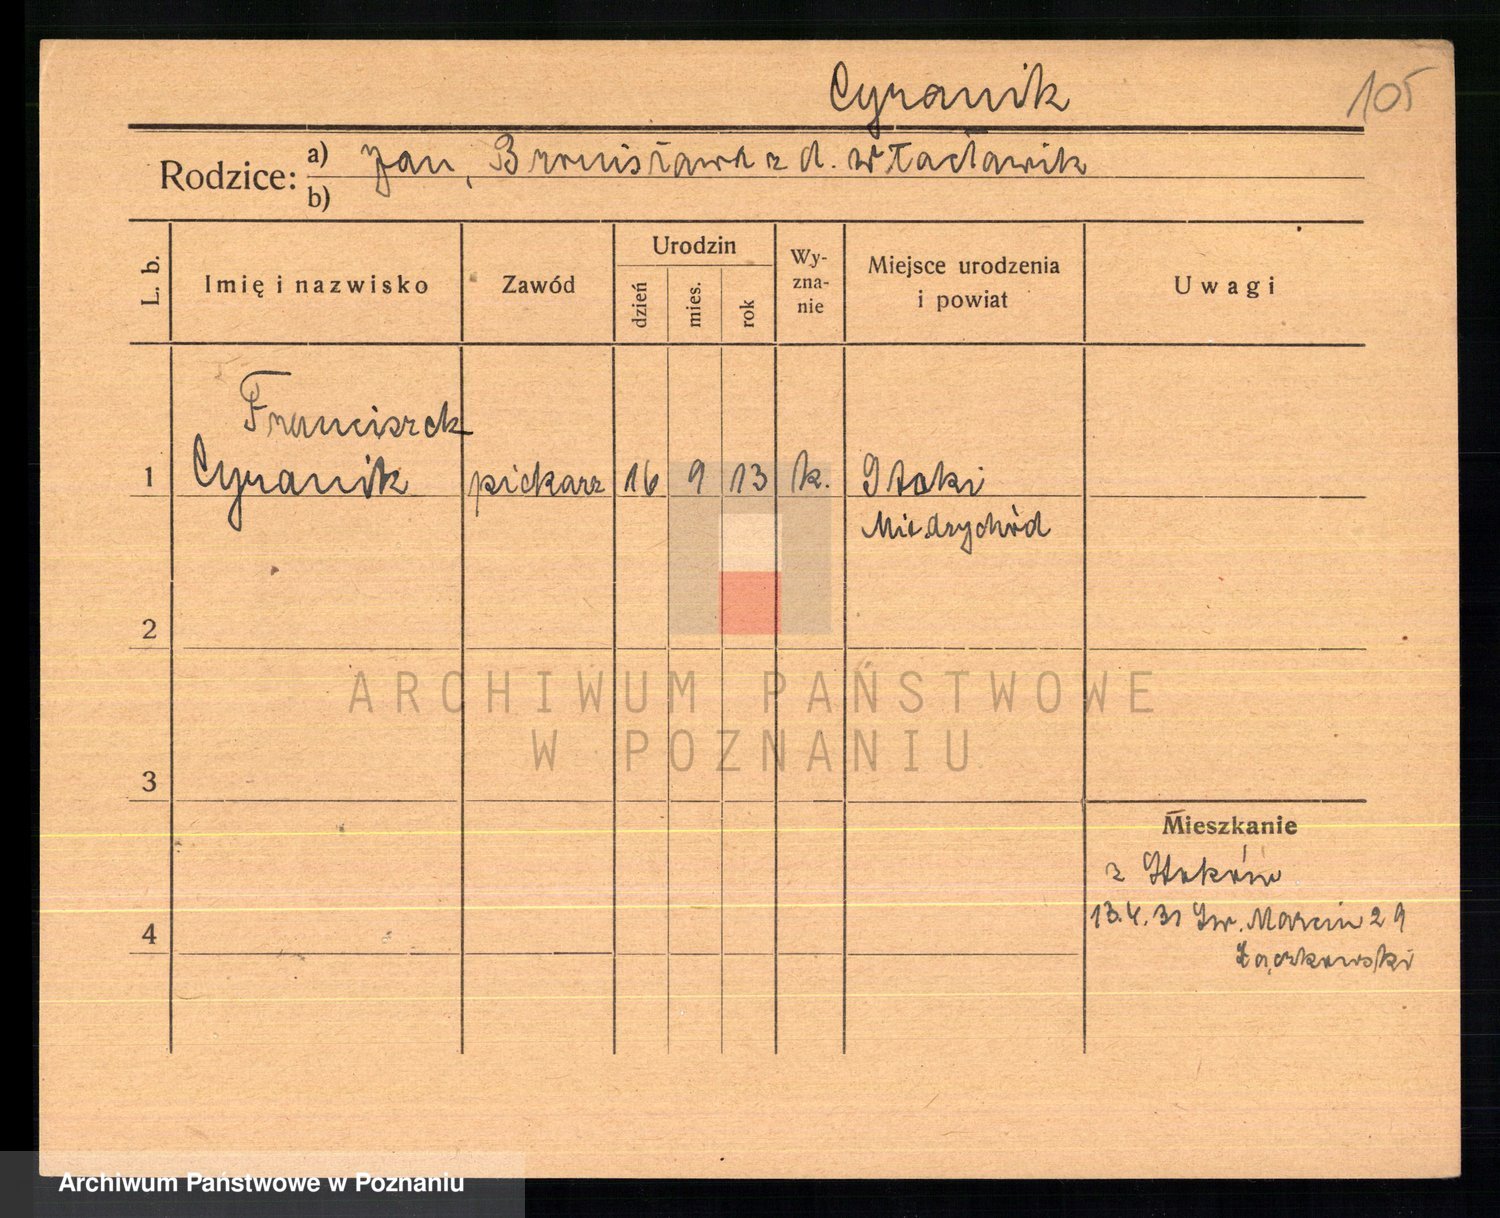 Cyranik
105
Rodzice: a) Jan, Bronisława z d. Wacławik
b)
L. b.
Imię i nazwisko
Zawód
Urodzin
dzień
mies.
rok
Wy-
zna-
nie
Miejsce urodzenia
i powiat
Uwagi
Franciszek
1 Cyranik piekarz 16 9 13 k. Stoki
Międzychód
2
ARCHIWUM PAŃSTWOWE
W POZNANIU
3
Mieszkanie
z Stoków
13.4.31 Św. Marcin 29
4
Łączkowski
Archiwum Państwowe w Poznaniu